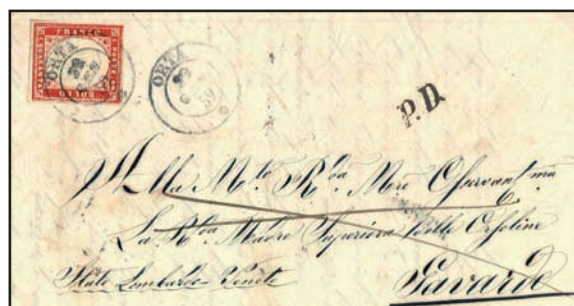 FRANCO
BOLLO
ORTA
ORTA
59
P.D.
Alla M.to R.da Osservant.ma
La R.da Madre Superiora delle Orsoline
Stato Lombardo-Veneto
Gavardo